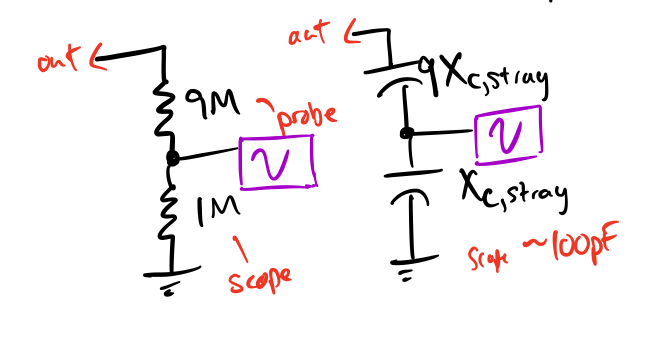 out
9M
probe
1M
scope
out
9X c,stray
X c,stray
scope ~100pF